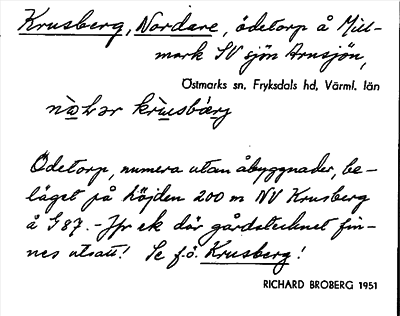 Krusberg, Nordare, ödetorp å Mill-
mark SV sjön Arnsjön,
Östmarks sn. Fryksdals hd, Värml. län
Ödetorp, numera utan åbyggnader, be-
läget på höjden 200 m NV Krusberg
å G87. - Jfr ek där gårdstecknet fin-
nes utsatt! Se f.ö. Krusberg!
RICHARD BROBERG 1951